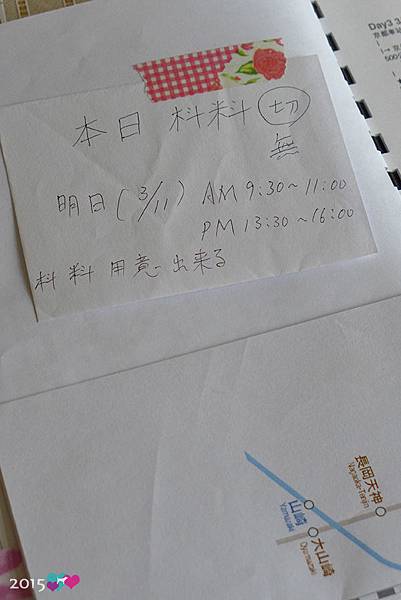 本日 料料 切
無
明日(3/11) AM 9:30~11:00
PM 13:30~16:00
料料用意出来る
Day3 3
500
長岡天神
Nagaoka-Tenjin
山崎
Yamazaki
大山崎
Oyamazaki
2015